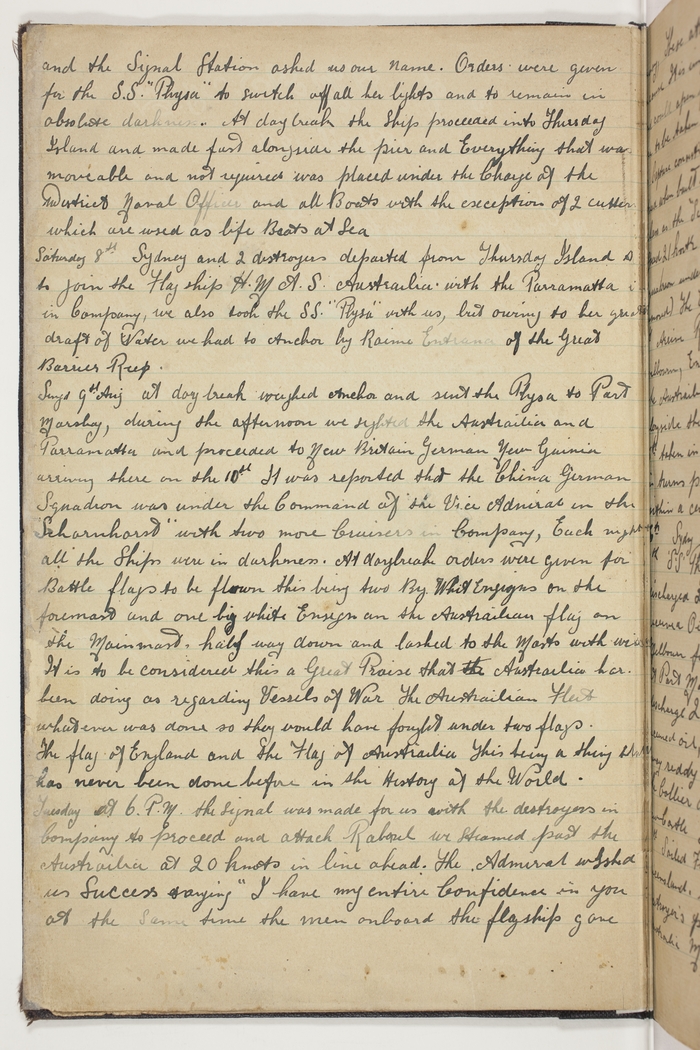 and the Signal Station asked us our name. Orders were given
for the S.S. "Physa" to switch off all her lights and to remain in
absolute darkness. At daybreak the Ship proceeded into Thursday
Island and made fast alongside the pier and Everything that was
moveable and not required was placed under the Charge of the
District Naval Officer and all Boats with the exception of 2 cutters
which are used as life Boats at Sea
Saturday 8th Sydney and 2 destroyers departed from Thursday Island
to join the Flag ship H.M.A.S. Australia with the Parramatta
in Company, we also took the S.S. "Physa" with us, but owing to her great
draft of Water we had to Anchor by Raine Entrance of the Great
Barrier Reef.
9th Aug at day break weighed Anchor and sent the Physa to Port
Morsby, during the afternoon we sighted the Austrailia and
Parramatta and proceeded to New Britain German New Guinia
arriving there on the 10th It was reported that the China German
Squadron was under the Command of the Vice Admiral in the
"Scharnhorst" with two more Cruisers in Company, Each night
all the Ships were in darkness. At daybreak orders were given for
Battle flags to be flown this being two Big White Ensigns on the
foremast and one big white Ensign an the Austrailian flag on
the Mainmast, half way down and lashed to the Masts with
It is to be considered this a Great Praise that the Austrailia has
been doing as regarding Vessels of War the Austrailian Fleet
whatever was done so they would have fought under two flags.
The flag of England and the Flag of Austrailia this being a thing
has never been done before in the History of the World.
Tuesday at 6. P.M. the signal was made for us with the destroyers in
Company to proceed and attack Rabaul we steamed past the
Austrailia at 20 knots in line ahead. The Admiral wished
us Success saying "I have my entire Confidence in you
at the same time the men onboard the flagship gave